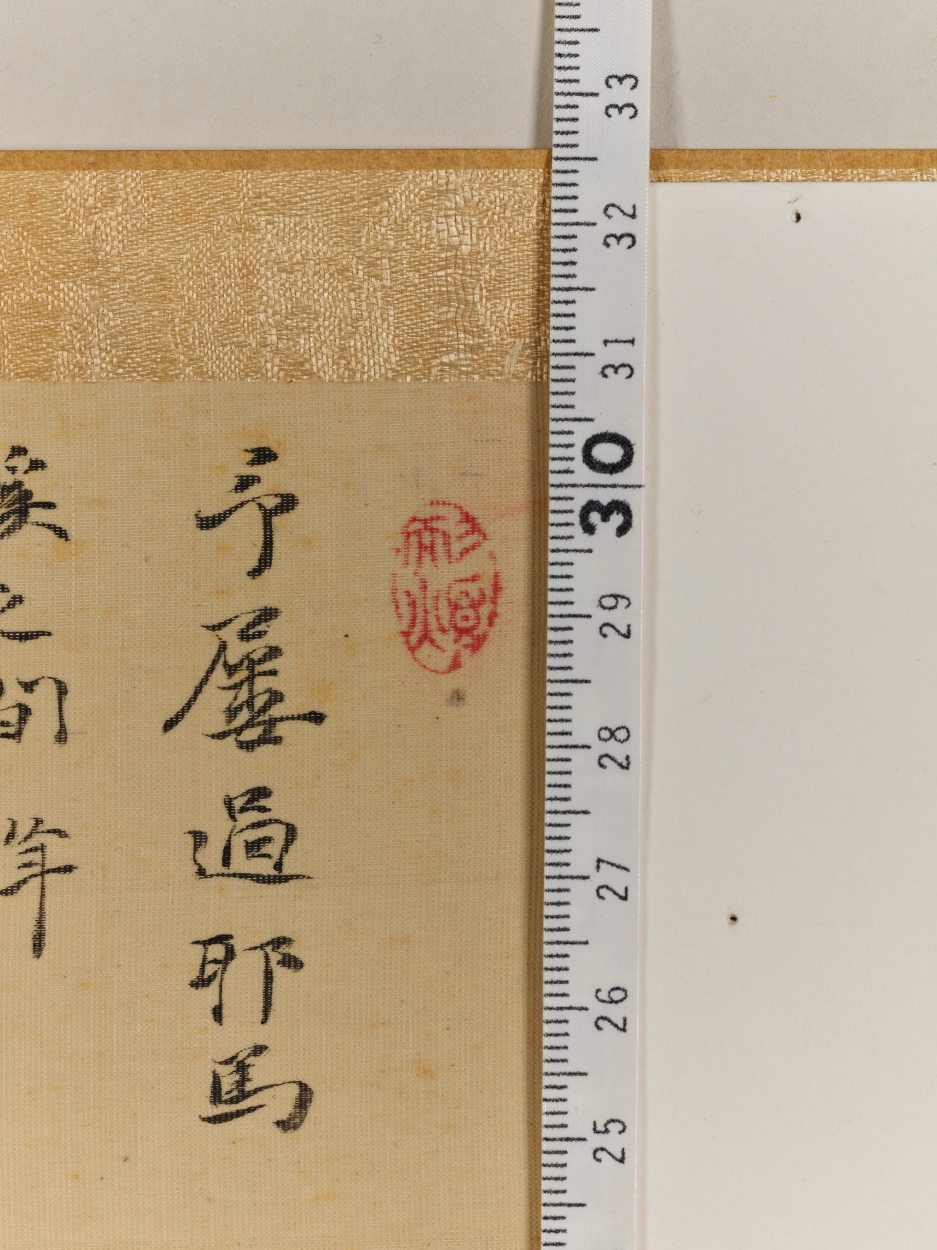 予屢過耶馬
溪之間年
33
32
31
30
29
28
27
26
25